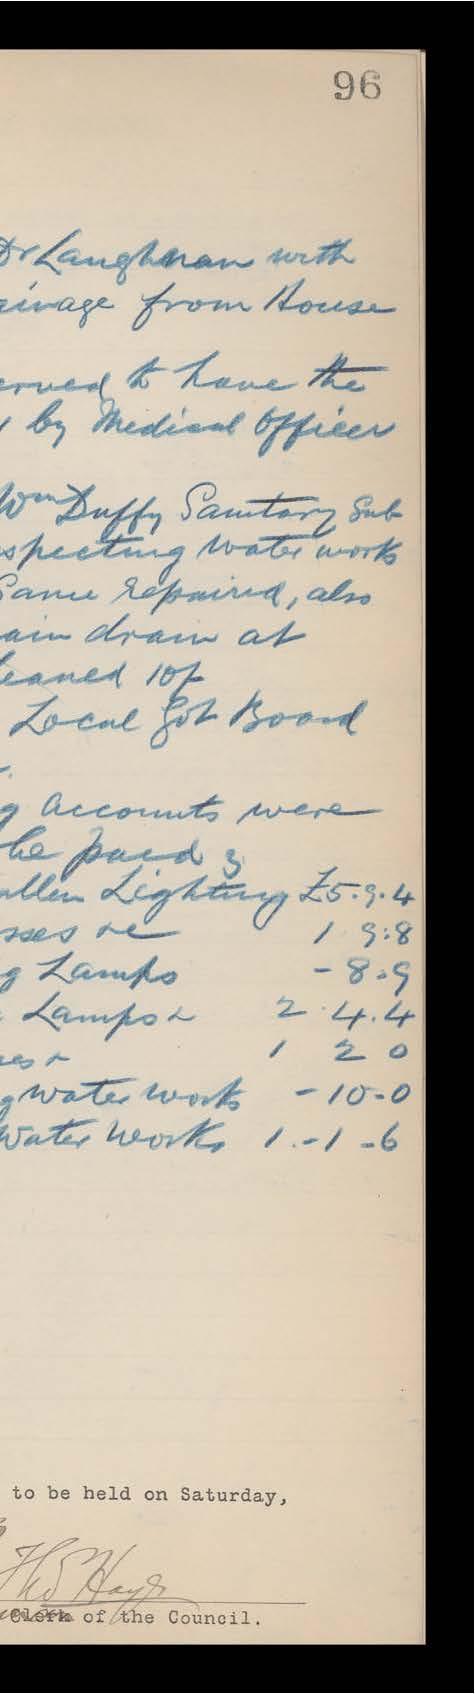 96
Dr Laughran with
ainage from House
erved to have the
by Medical Officer
Wm Duffy Sanitary Sub
specting water works
Same repaired, also
ain drain at
leaned 10/-
Local Got Board
g accounts were
be paid ;
allen Lighting £5.9.4
sses re 1 9:8
g Lamps - 8.9
Lamps 2.4.4
es 1 2 0
g water works - 10-0
Water works 1.-1-6
to be held on Saturday,
Thos Hayes
Clerk of the Council.